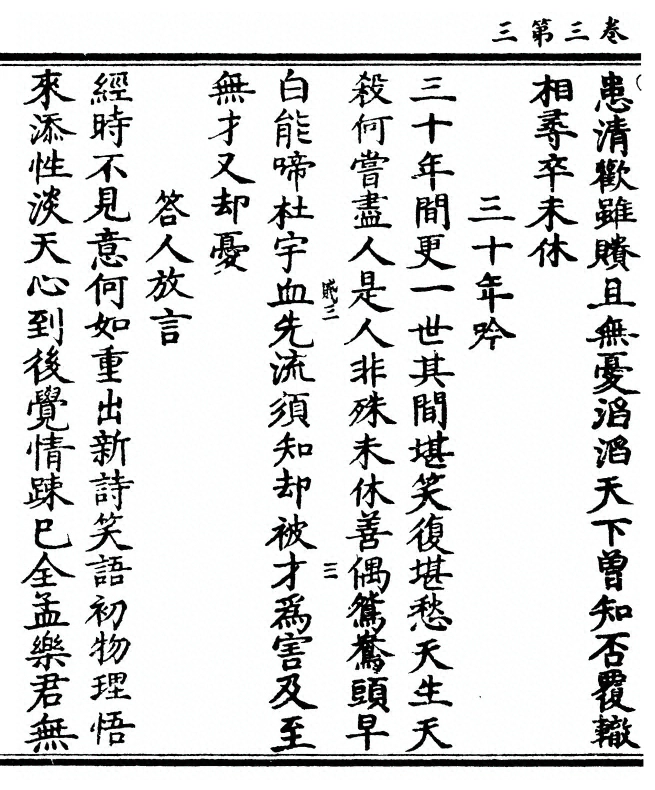 卷三第三
患清歡雖賸且無憂滔滔天下曾知否覆轍
相尋卒未休
三十年吟
三十年間更一世其間堪笑復堪愁天生天
殺何嘗盡人是人非殊未休善偶鴛鴦頭早
白能啼杜宇血先流須知却被才爲害及至
無才又却憂
答人放言
經時不見意何如重出新詩笑語初物理悟
來添性淡天心到後覺情踈已全孟樂君無